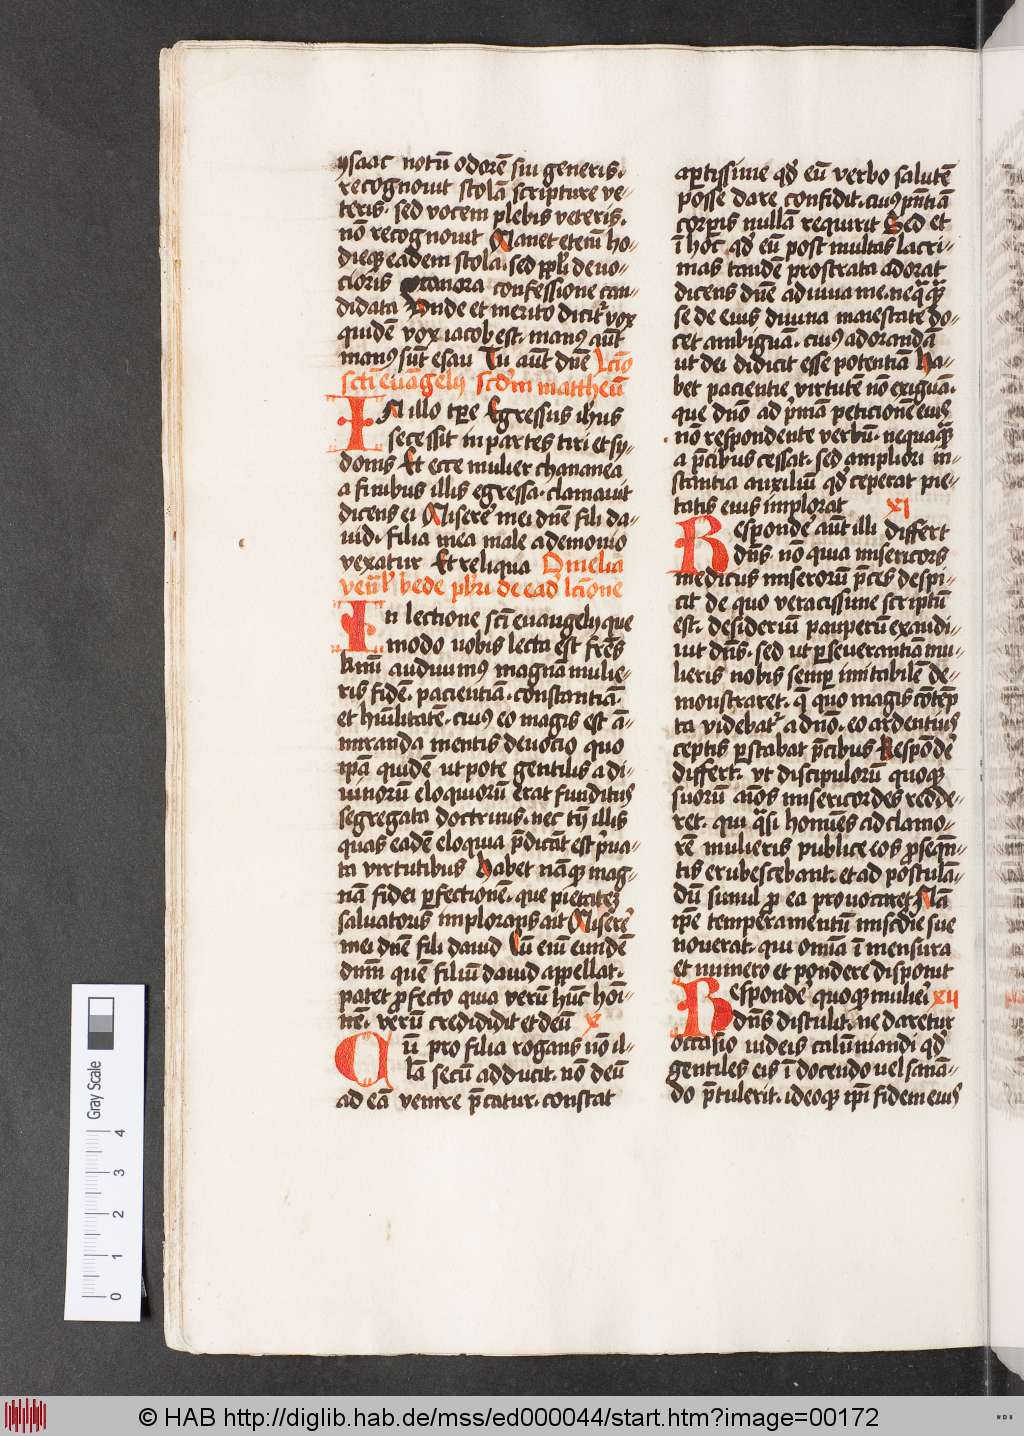 ysaac notū odorē sui generis.
recognouit stolā scripture ve-
teris. sed vocem plebis veteris.
nō recognouit Manet etenī ho-
dieqꝫ eadem stola. sed ppl'i deuo-
cioris canora confessione can-
didata Vnde et merito dicit᷑ vox
quidē vox iacob est. manꝰ aūt
manꝰ sūt esau Tu aūt dn̄e lc̄io
sc̄ti euāgelij scd'm mattheū
IN illo tp̄e Egressus ih̄us
secessit in partes tiri et sy-
donis Et ecce mulier chananea
a finibus illis egressa. clamauit
dicens ei Miserē mei dn̄e fili da-
uid. filia mea male a demonio
vexatur Et reliqua Omelia
ven̄l' bede pb̄ri de ead' lc̄ione
In lectione sc̄i euangelij que
modo uobis lecta est fr̄es
kr̄mi audiuimꝰ magnā mulie-
ris fidē. pacientiā. constantiā.
et hūilitatē. cuiꝰ eo magis est ā-
miranda mentis deuocio quo
ip̄a quidē utpote gentilis a di-
uinorū eloquiorū erat funditus
segregata doctrinis. nec tn̄ illis
quas eadē eloquia p̄dicāt est p̄ua-
ta virtutibus Habet nāqꝫ mag-
nā fidei ꝑfectionē. que pietatē
saluatoris implorans ait Miserē
mei dn̄e fili dauid Cū enī eundē
dn̄m quē filiū dauid appellat.
patet ꝓfecto quia verū hūc hoī-
nē. verū credidit et deū x
Cū pro filia rogans nō il-
lā secū adducit. nō deū
ad eā venire p̄catur. constat
aꝑtissime qd' eū verbo salutē
posse dare confidit. cuiꝰ pn̄tiā
corꝑis nullā requirit Sed et
ī hoc qd' eū post multas lacri-
mas tandē prostrata adorat
dicens dn̄e adiuua me. neq̄q̄
se de eius diuina maiestate do-
cet ambiguā. cuiꝰ adorandā
ut dei didicit esse potentiā Ha-
bet pacientie virtutē nō exiguā.
que dn̄o ad p̄mā peticionē eius
nō respondente verbū. nequaq̄
a p̄cibus cessat. sed ampliori in-
stantia auxiliū qd' ceperat pie-
tatis eius implorat xi
Respondē aūt illi differt
dn̄s. nō quia misericors
medicus miserorū p̄ces despi-
cit de quo veracissime scriptū
est. desideriū pauperū exaudi-
uit dn̄s. sed ut ꝑseuerantiā mu-
lieris nobis semꝑ imitabilē de-
monstraret. q̄ quo magis cōtēp-
ta videbat᷑ a dn̄o. eo ardentius
ceptis ꝑstabat p̄cibus Respōdē
differt. vt discipulorū quoqꝫ
suorū aīos misericordes redde-
ret. qui q̄si homīes ad clamo-
rē mulieris publice eos ꝓseqn̄-
tis erubescebant. et ad postulā-
dū simul ꝓ ea prouocaret Nā
ip̄e temperamentū mīcdie sue
nouerat. qui om̄ia ī mensura
et numero et pondere disponit
Respondē quoqꝫ mulieī xii
dn̄s distulit. ne daretur
occasio iudeis calūniandi qd'
gentiles eis ī docendo uel sanā-
do p̄tulerit. ideoqꝫ ip̄i fidem eiꝰ
Gray Scale
4
3
2
1
0
© HAB http://diglib.hab.de/mss/ed000044/start.htm?image=00172